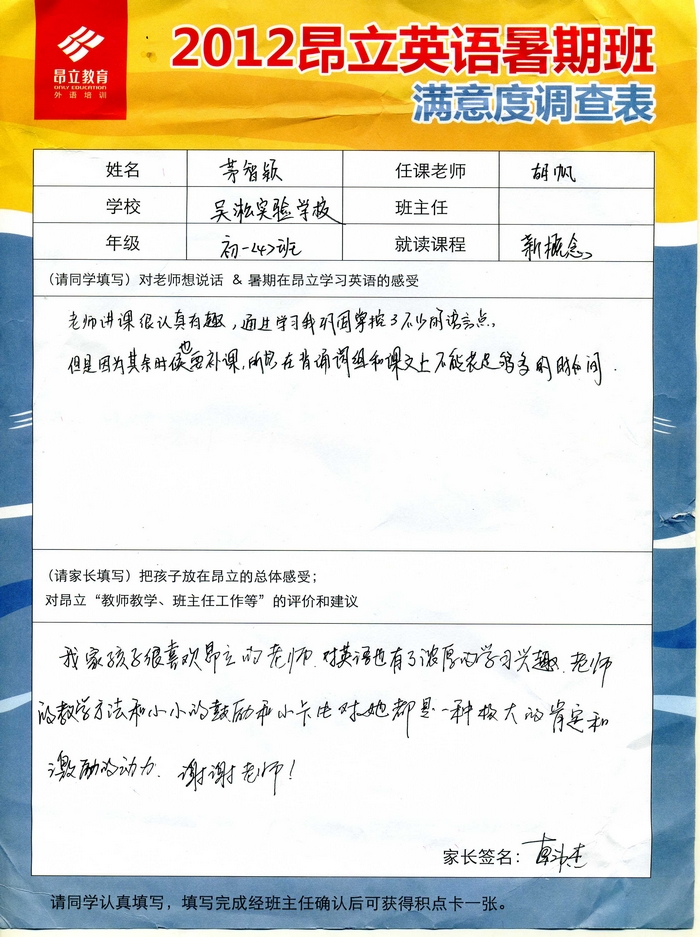 昂立教育
ONLY EDUCATION
外语培训
2012昂立英语暑期班
满意度调查表
姓名 茅智颖 任课老师 胡帆
学校 吴淞实验学校 班主任
年级 初一<4>班 就读课程 新概念
(请同学填写) 对老师想说话 & 暑期在昂立学习英语的感受
老师讲课很认真有趣,通过学习我巩固掌握了不少的语言点。
但是因为其余时候也要补课,所以在背诵词组和课文上不能花足够多的时间.
(请家长填写) 把孩子放在昂立的总体感受;
对昂立“教师教学、班主任工作等”的评价和建议
我家孩子很喜欢昂立的老师.对英语也有了浓厚的学习兴趣.老师
的教学方法和小小的鼓励和小卡片对她都是一种极大的肯定和
激励的动力. 谢谢老师!
家长签名:
请同学认真填写,填写完成经班主任确认后可获得积点卡一张。